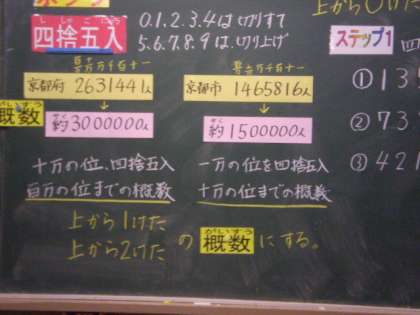 ししゃごにゅう
四捨五入
0.1.2.3.4は切りすて
5.6.7.8.9は、切り上げ
上から1けた
ステップ1
百十万千百十一
京都府 2631441人
約3000000人
十万の位、四捨五入
百万の位までの概数
百十万千百十一
京都市 1465816人
約1500000人
一万の位を四捨五入
十万の位までの概数
がいすう
概数
上から1けた
上から2けた
の概数にする。
がいすう
① 13
② 73
③ 421